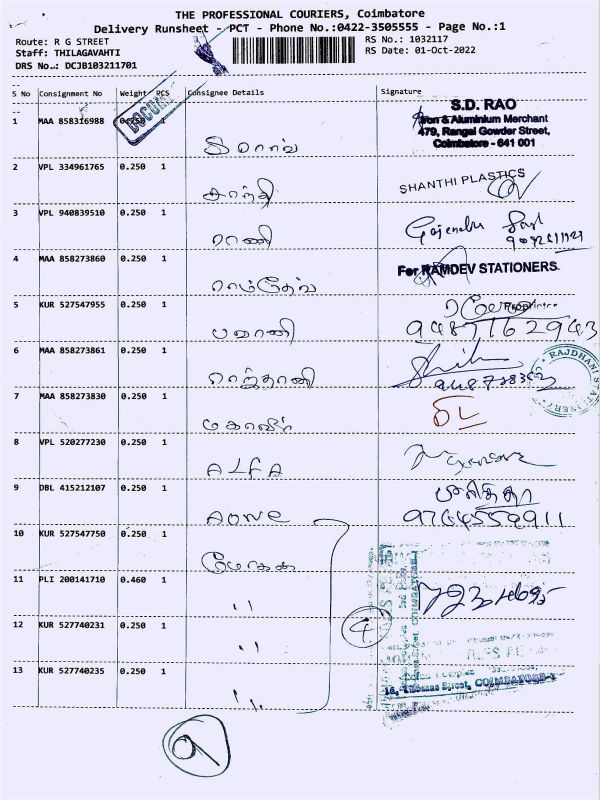 THE PROFESSIONAL COURIERS, Coimbatore
Delivery Runsheet - PCT - Phone No.:0422-3505555 - Page No.:1
Route: R G STREET
RS No.: 1032117
Staff: THILAGAVAHTI
RS Date: 01-Oct-2022
DRS No.: DCJB103211701
S No Consignment No Weight PCS Consignee Details Signature
S.D. RAO
Iron & Aluminium Merchant
479, Rangai Gowder Street,
Coimbatore - 641 001
1 MAA 858316988 0.250 1
DOCUME
2 VPL 334961765 0.250 1
சாந்தி
SHANTHI PLASTICS
3 VPL 940839510 0.250 1
ராணி
4 MAA 858273860 0.250 1
ராம்தேவ்
For RAMDEV STATIONERS
Proprietor
5 KUR 527547955 0.250 1
பவானி
9487162943
6 MAA 858273861 0.250 1
ராஜ்தானி
RAJDHANI STATIONERY
7 MAA 858273830 0.250 1
மகாவீர்
8 VPL 520277230 0.250 1
ALFA
9 DBL 415212107 0.250 1
AONE
10 KUR 527547750 0.250 1
11 PLI 200141710 0.460 1
"
4
12 KUR 527740231 0.250 1
"
13 KUR 527740235 0.250 1
"
16, Thomas Street, COIMBATORE-1
9